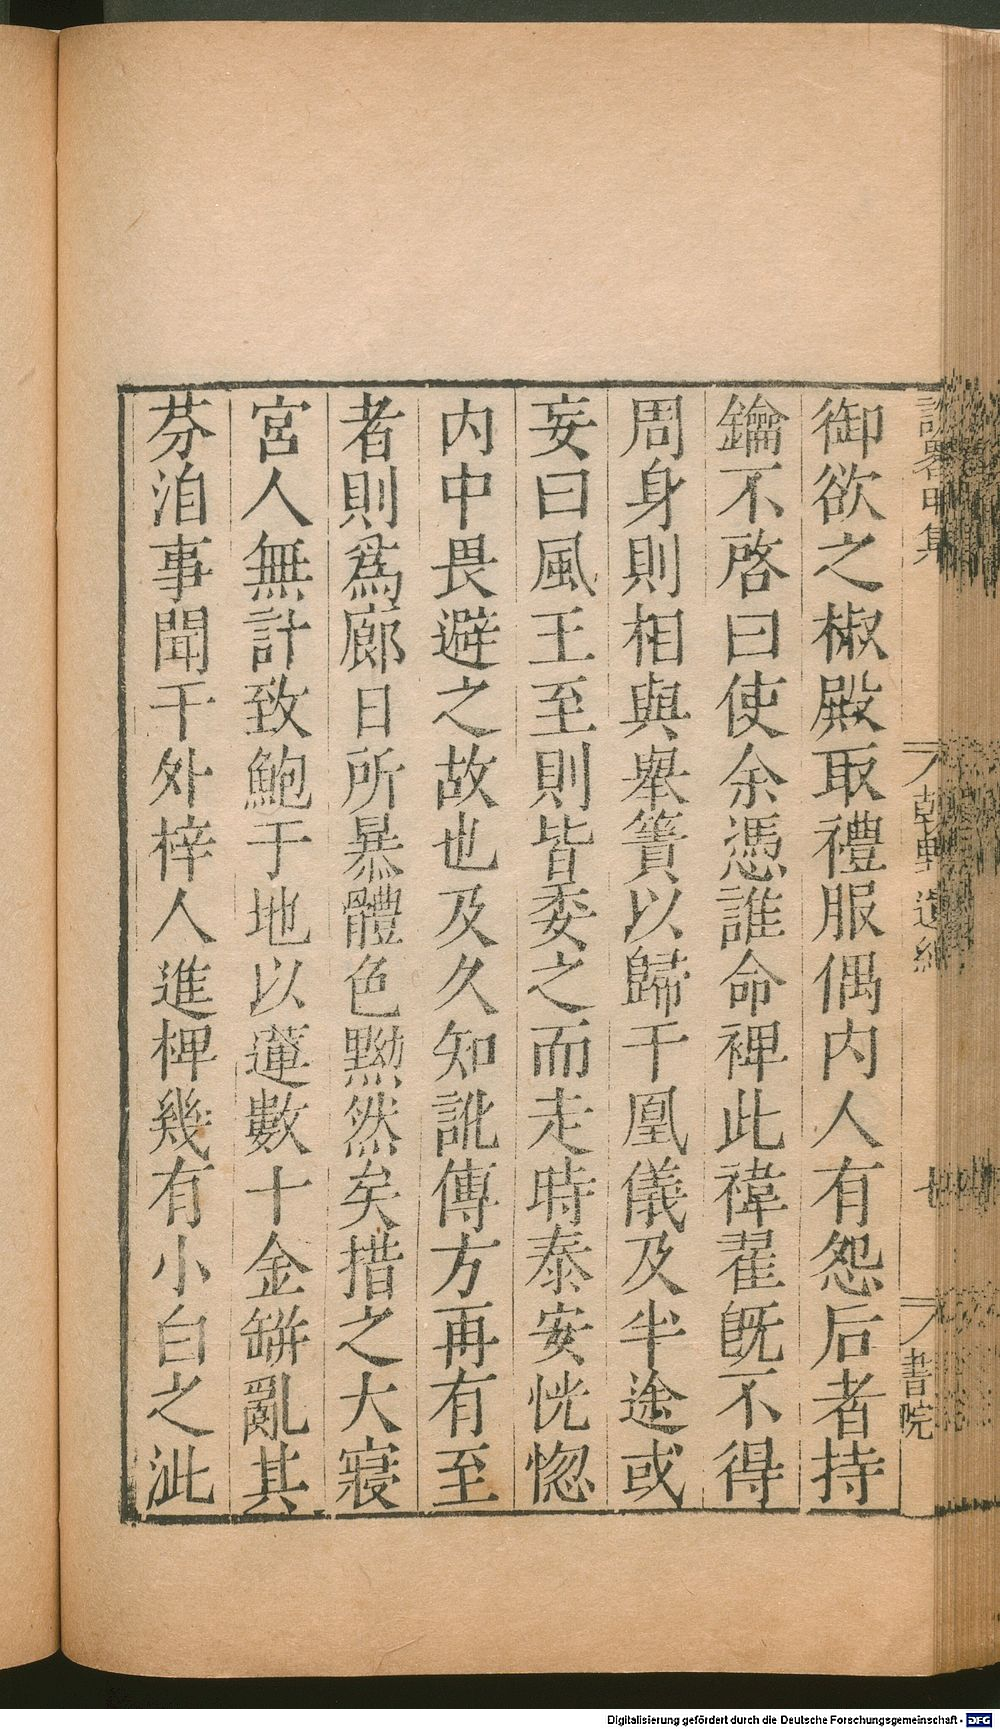 御欲之椒殿取禮服偶内人有怨后者持
鑰不啓曰使余憑誰命裨此褘翟旣不得
周身則相與舉簀以歸干凰儀及半途或
妄曰風王至則皆委之而走時泰安恍惚
内中畏避之故也及久知訛傳方再有至
者則爲廊日所暴體色黝然矣措之大寢
宮人無計致鮑于地以蓮數十金缾亂其
芬洎事聞干外梓人進椑幾有小白之泚
七
書院
Digitalisierung gefördert durch die Deutsche Forschungsgemeinschaft - DFG